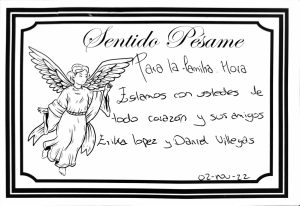 Sentido Pésame
Para la familia Mora
Estamos con ustedes de
todo corazón y sus amigos
Erika Lopez y Daniel Villegas
02-nov-22